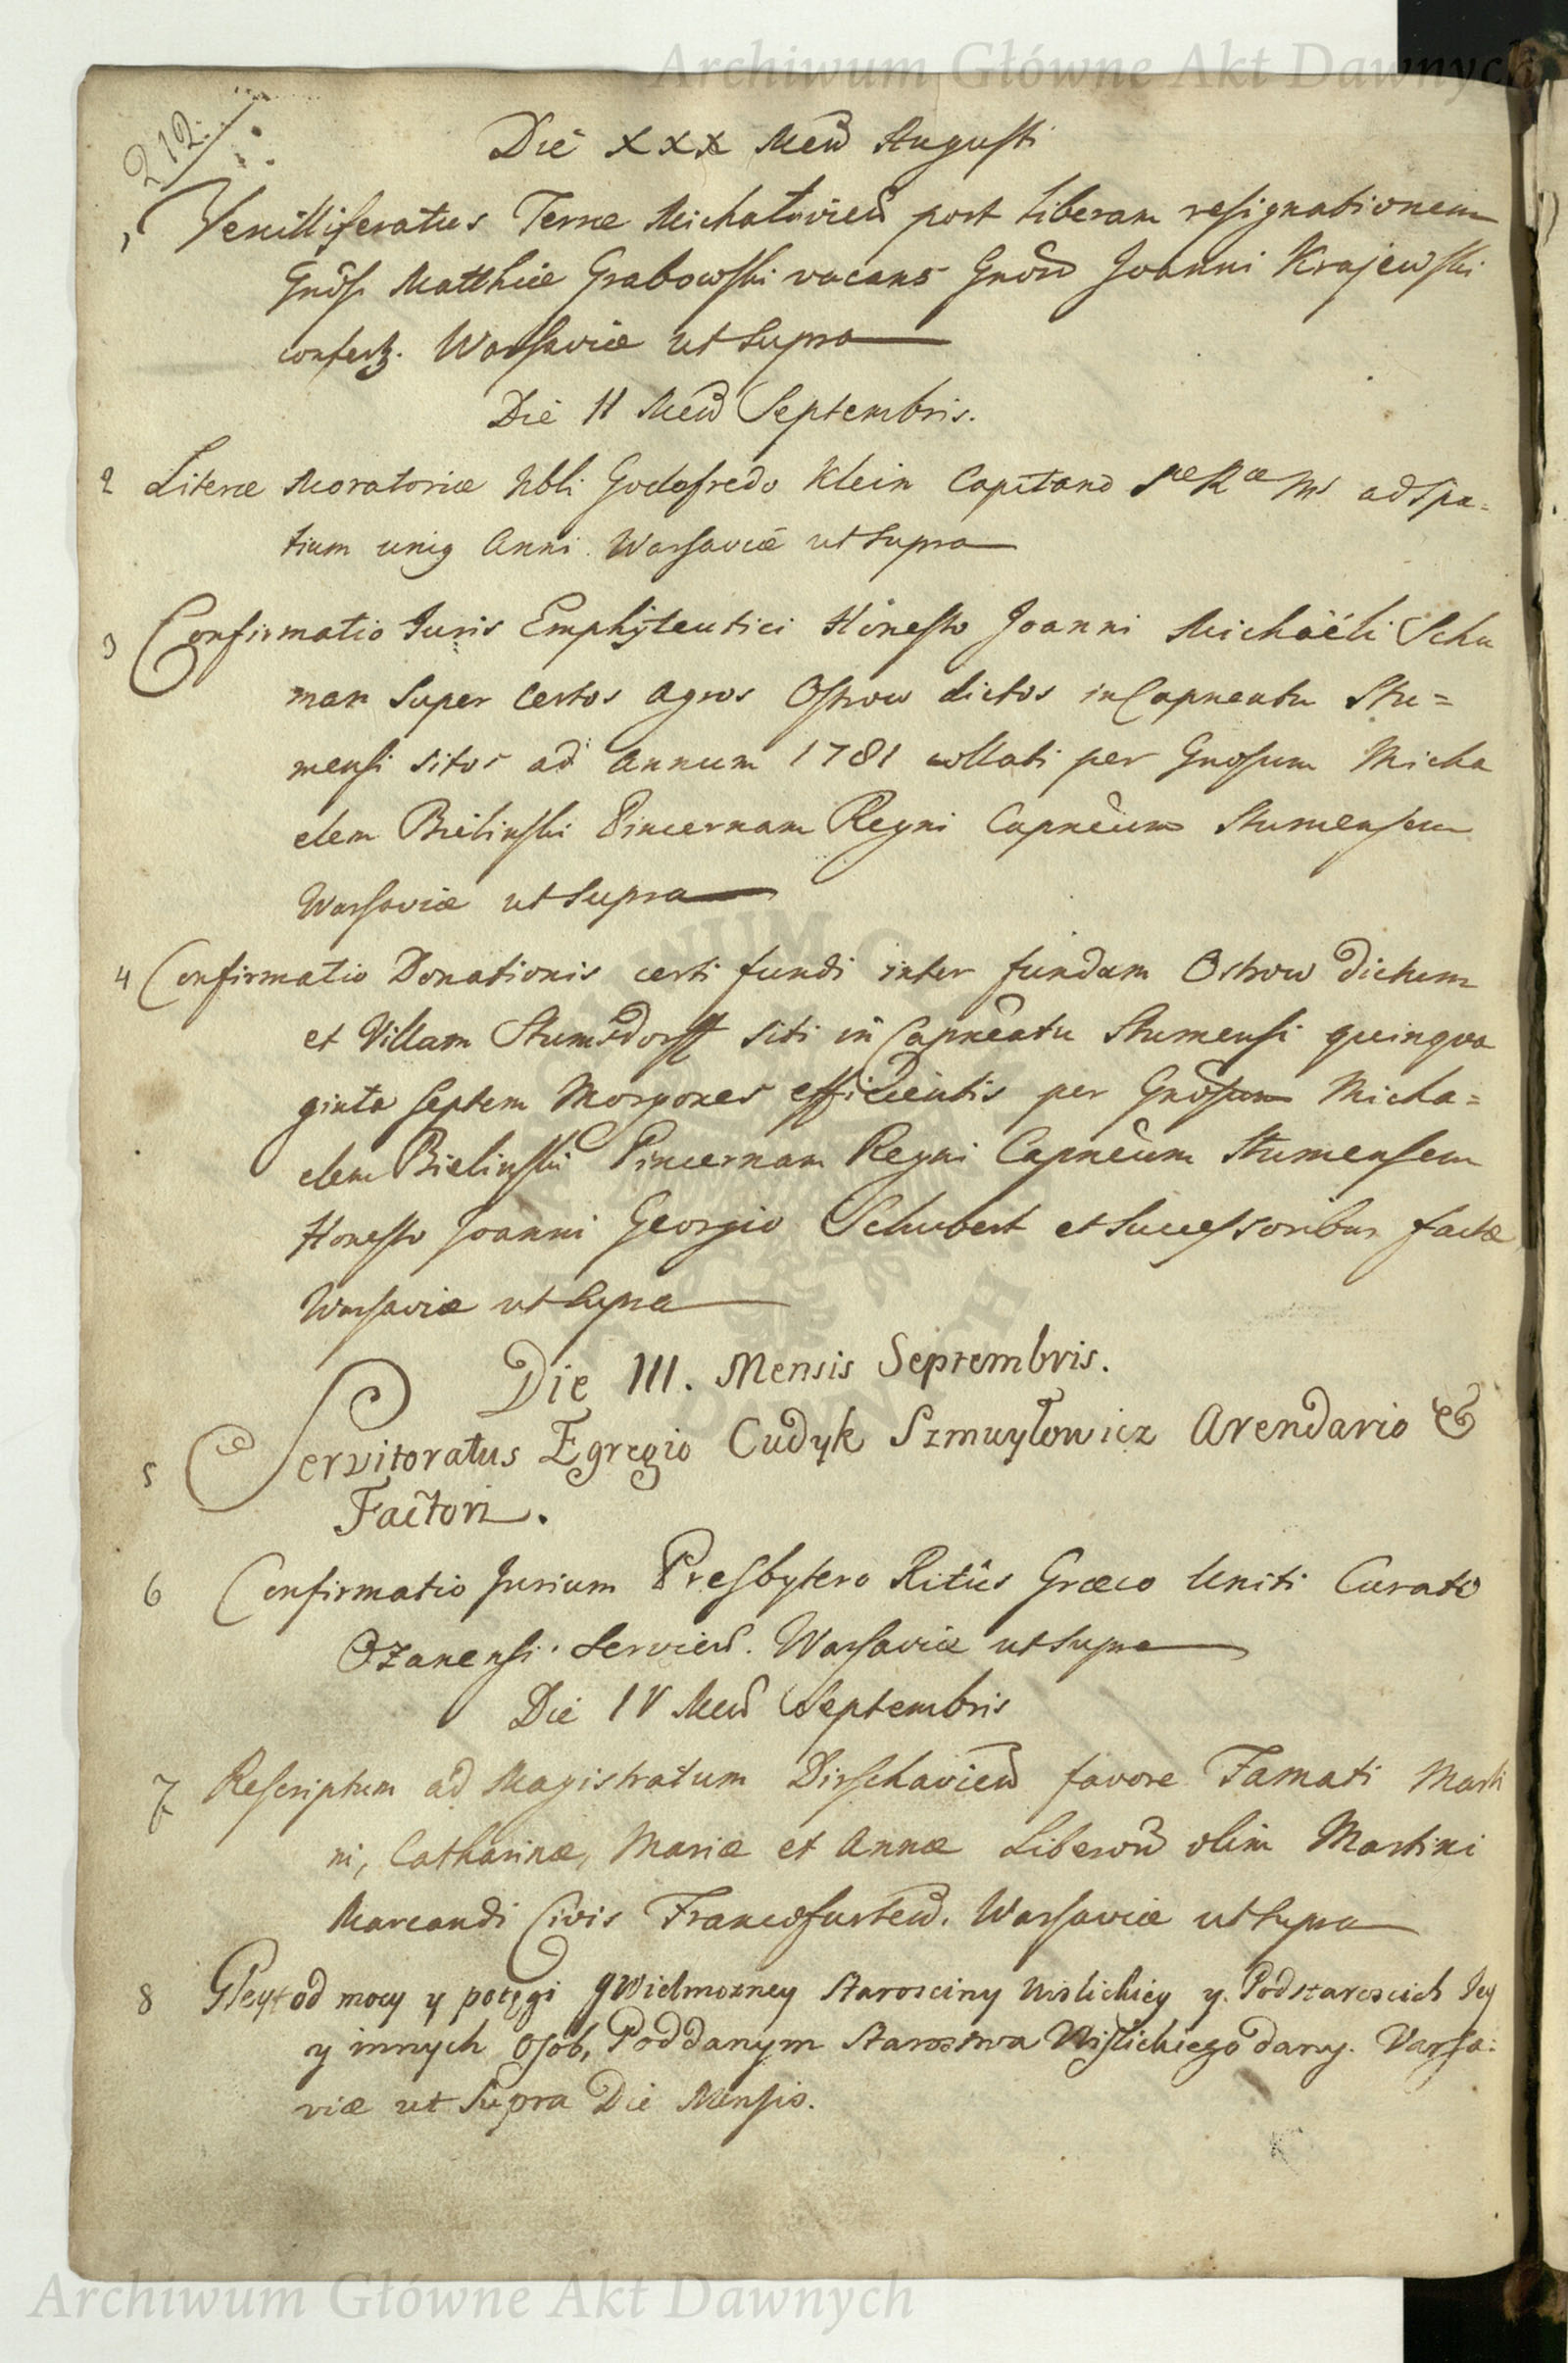 Archiwum Główne Akt Dawnych
212.
Die XXX Men Augusti
1 Vexilliferatus Terræ Michaloviens post liberam resignationem
Gnosi Matthiæ Grabowski vacans Gnoso Joanni Krajewski
confertz. Warsaviæ ut supra
Die II Mens Septembris.
2 Literæ Moratoriæ Nbli Godofredo Klein Capitano SæRæMs ad spa-
tium unig Anni. Warsaviæ ut supra
3 Confirmatio Juris Emphyteutici Honesto Joanni Michaëli Schu
man super certos agros Ostrow dictos in Capneatu Stu=
mensi sitos ad annum 1781 collati per Gnosum Micha
elem Bielinski Pincernam Regni Capneum Stumensem
Warsaviæ ut supra
4 Confirmatio Donationis certi fundi inter fundum Ostrow dictum
et Villam Stumsdorff siti in Capneatu Stumensi quinqva
ginta septem Morgones efficientis per Gnosum Micha=
elem Bielinski Pincernam Regni Capneum Stumensem
Honesto Joanni Georgio Schubert et Successoribus factæ
Warsaviæ ut supra
Die III. Mensis Septembris.
5 Servitoratus Egregio Cudyk Szmuylowicz Arendario &
Factori.
6 Confirmatio Jurium Presbytero Ritûs Græco Uniti Curato
Ozanensi Serviens. Warsaviæ ut supra
Die IV Mens Septembris
7 Rescriptum ad Magistratum Dirschaviens favore Famati Marti
ni, Catharinæ, Mariæ et Annæ Liberorum olim Martini
Marcandi Civis Francofurtens. Warsaviæ ut supra
8 Gleyt od mocy y potęgi JWielmozney Starosciny Wislickiey y Podstarościch Jey
y innych osob, Poddanym Starostwa Wislickiego dany. Varsa-
viæ ut Supra Die Mensis.
Archiwum Główne Akt Dawnych